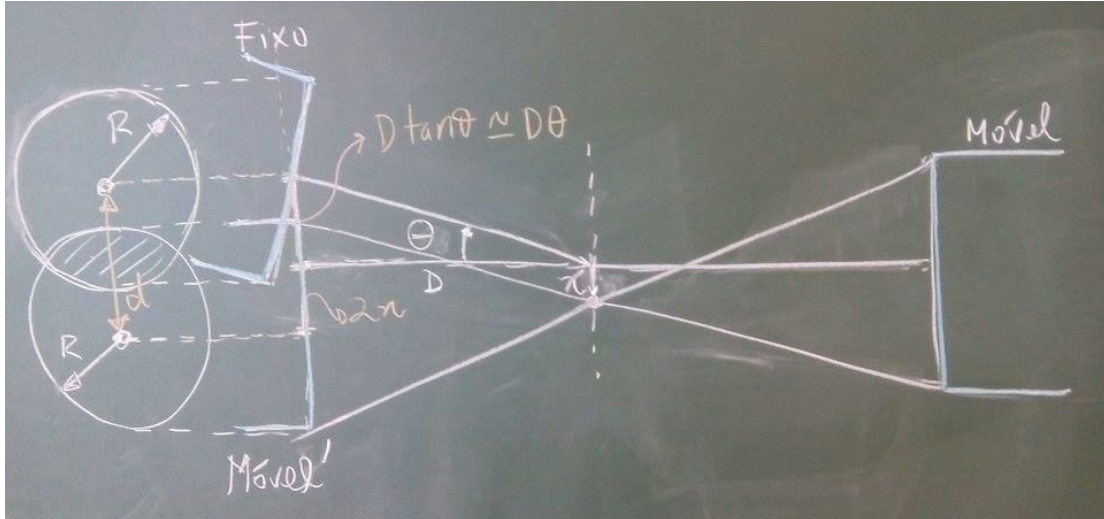 Fixo
R
D tanθ ≃ Dθ
Móvel
θ
D
x
d
2x
R
Móvel'